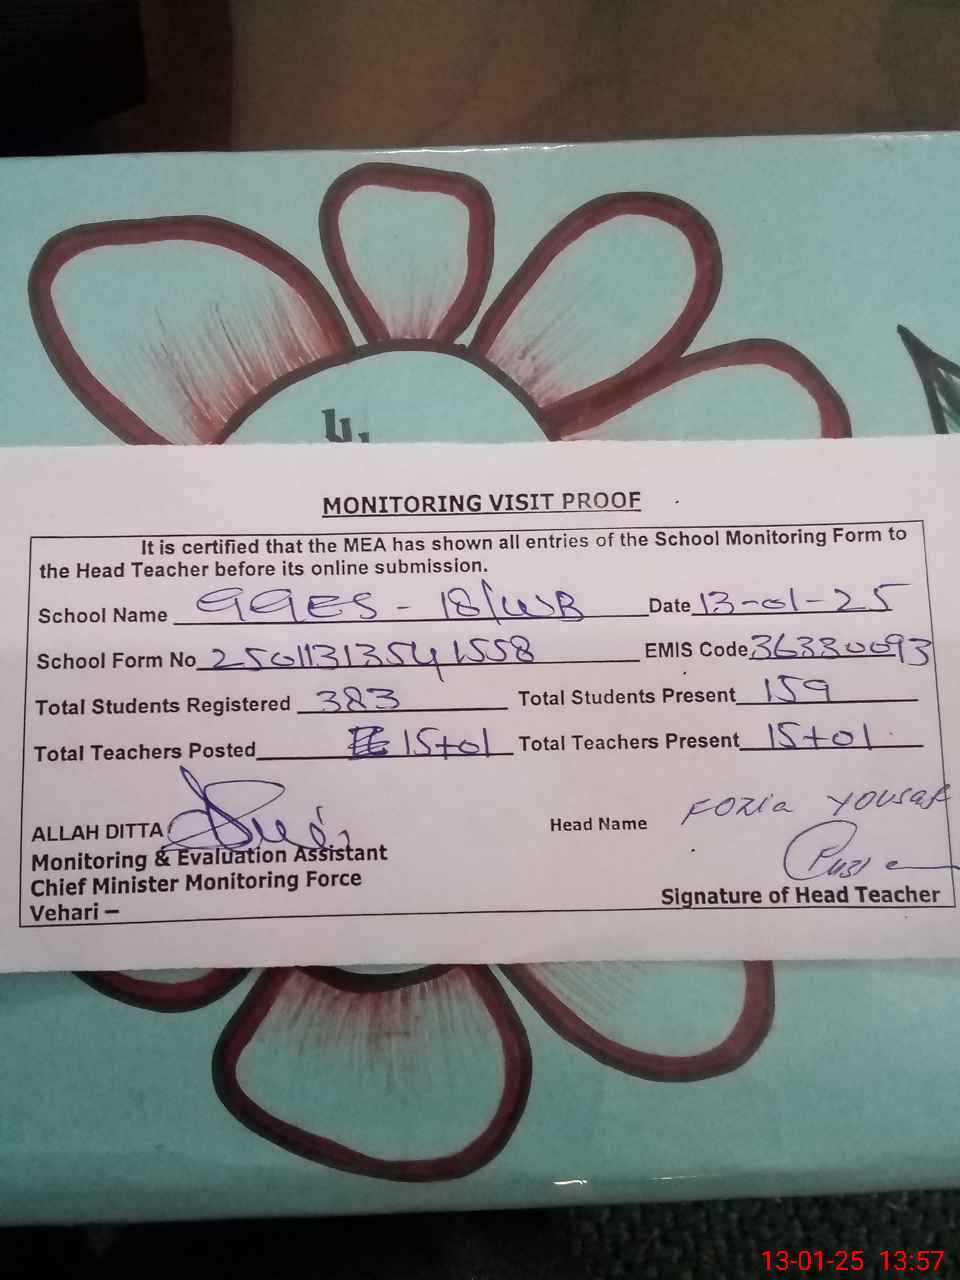 MONITORING VISIT PROOF
It is certified that the MEA has shown all entries of the School Monitoring Form to
the Head Teacher before its online submission.
School Name GGES - 18/WB Date 13-01-25
School Form No 25011313541558 EMIS Code 36330093
Total Students Registered 383 Total Students Present 159
Total Teachers Posted 15+01 Total Teachers Present 15+01
ALLAH DITTA
Head Name FOZIA YOUSAF
Monitoring & Evaluation Assistant
Chief Minister Monitoring Force
Signature of Head Teacher
Vehari –
13-01-25 13:57